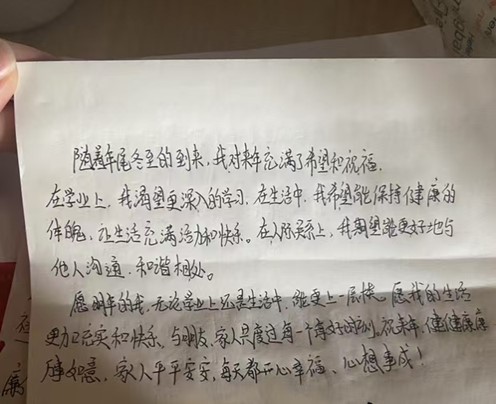 随着年尾冬至的到来，我对来年充满了希望和祝福，
在学业上，我渴望更深入的学习，在生活中，我希望能保持健康的
体魄，让生活充满活力和快乐。在人际关系上，我期望能更好地与
他人沟通，和谐相处。
愿明年的我，无论学业上还是生活中，能更上一层楼。愿我的生活
更加充实和快乐，与朋友，家人共度过每一个美好时刻，祝来年，健健康康
万事如意，家人平平安安，每天都开心幸福、心想事成！